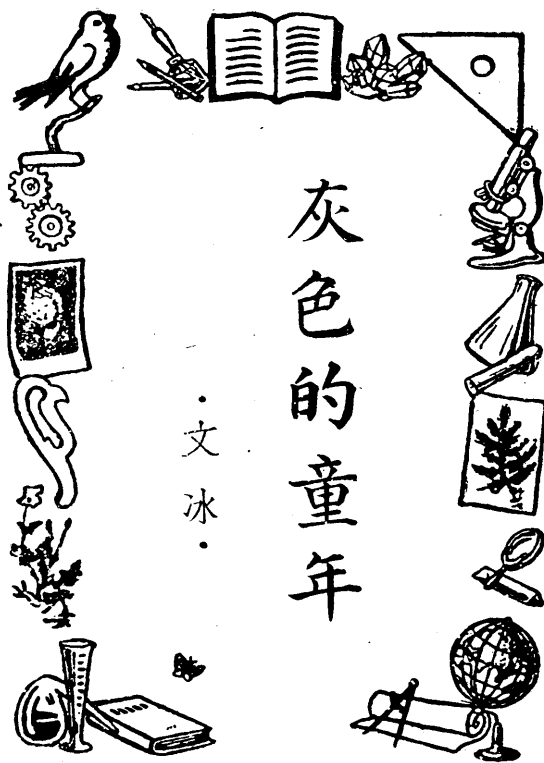 灰色的童年
·文冰·